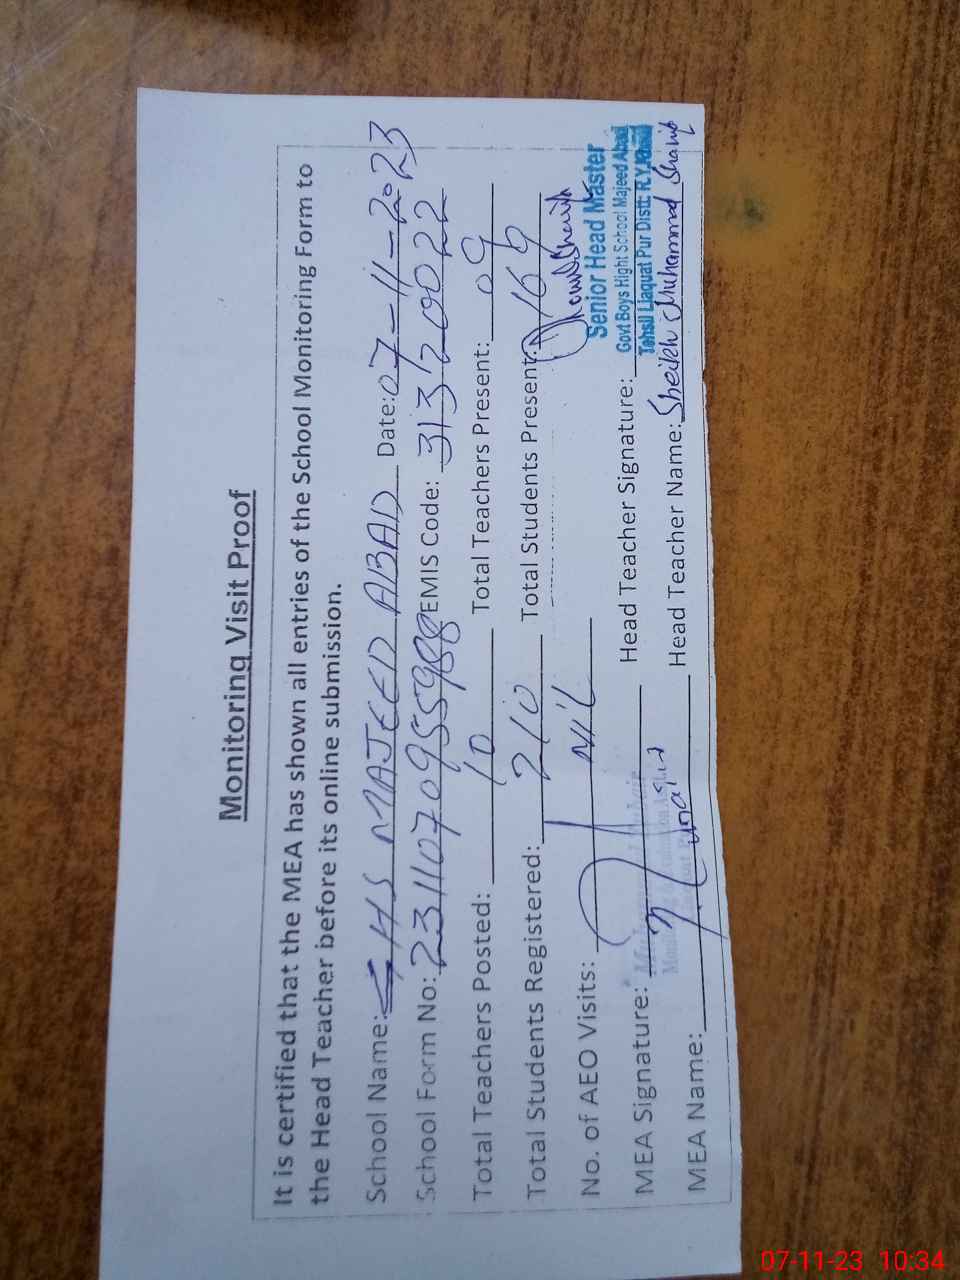 Monitoring Visit Proof
It is certified that the MEA has shown all entries of the School Monitoring Form to
the Head Teacher before its online submission.
School Name: GHS MAJEED ABAD Date: 07-11-2023
School Form No: EMIS Code: 31320022
Total Teachers Posted: 10 Total Teachers Present: 09
Total Students Registered: 210 Total Students Present: 169
No. of AEO Visits: NIL
Senior Head Master
Govt Boys Hight School Majeed Abad
Tehsil Liaquat Pur Distt: R.Y.Khan
MEA Signature: Head Teacher Signature:
MEA Name: Head Teacher Name: Sheikh Muhammad Sharif
07-11-23 10:34